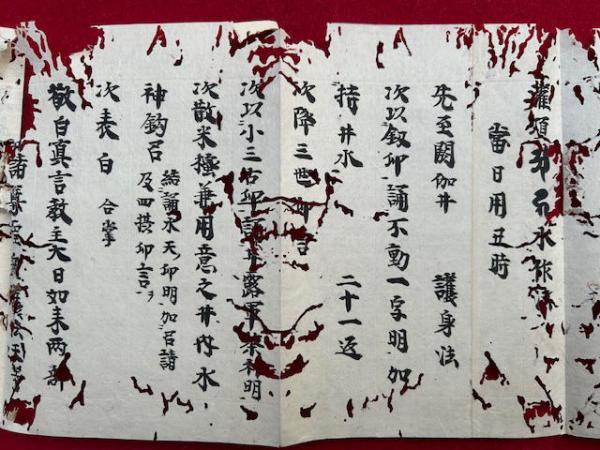 灌頂
當日用丑時
先至閼伽井　護身法
次以釼印誦不動一字明加
持井水　二十一返
次降三世印言
次以小三古印誦甘露軍荼利明
次散米糂兼用意之井内水
神鈎召 結誦水天印明加召請
及四摂印言ヲ
次表白 合掌
敬白真言教主大日如来两部
諸尊聖